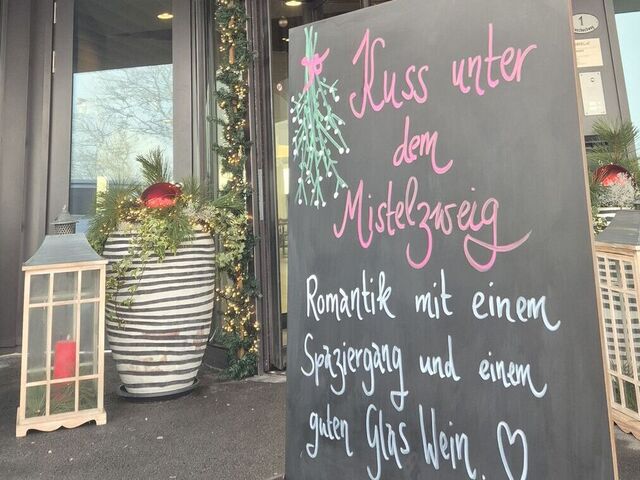 Kuss unter
dem
Mistelzweig
Romantik mit einem
Spaziergang und einem
guten Glas Wein.
1